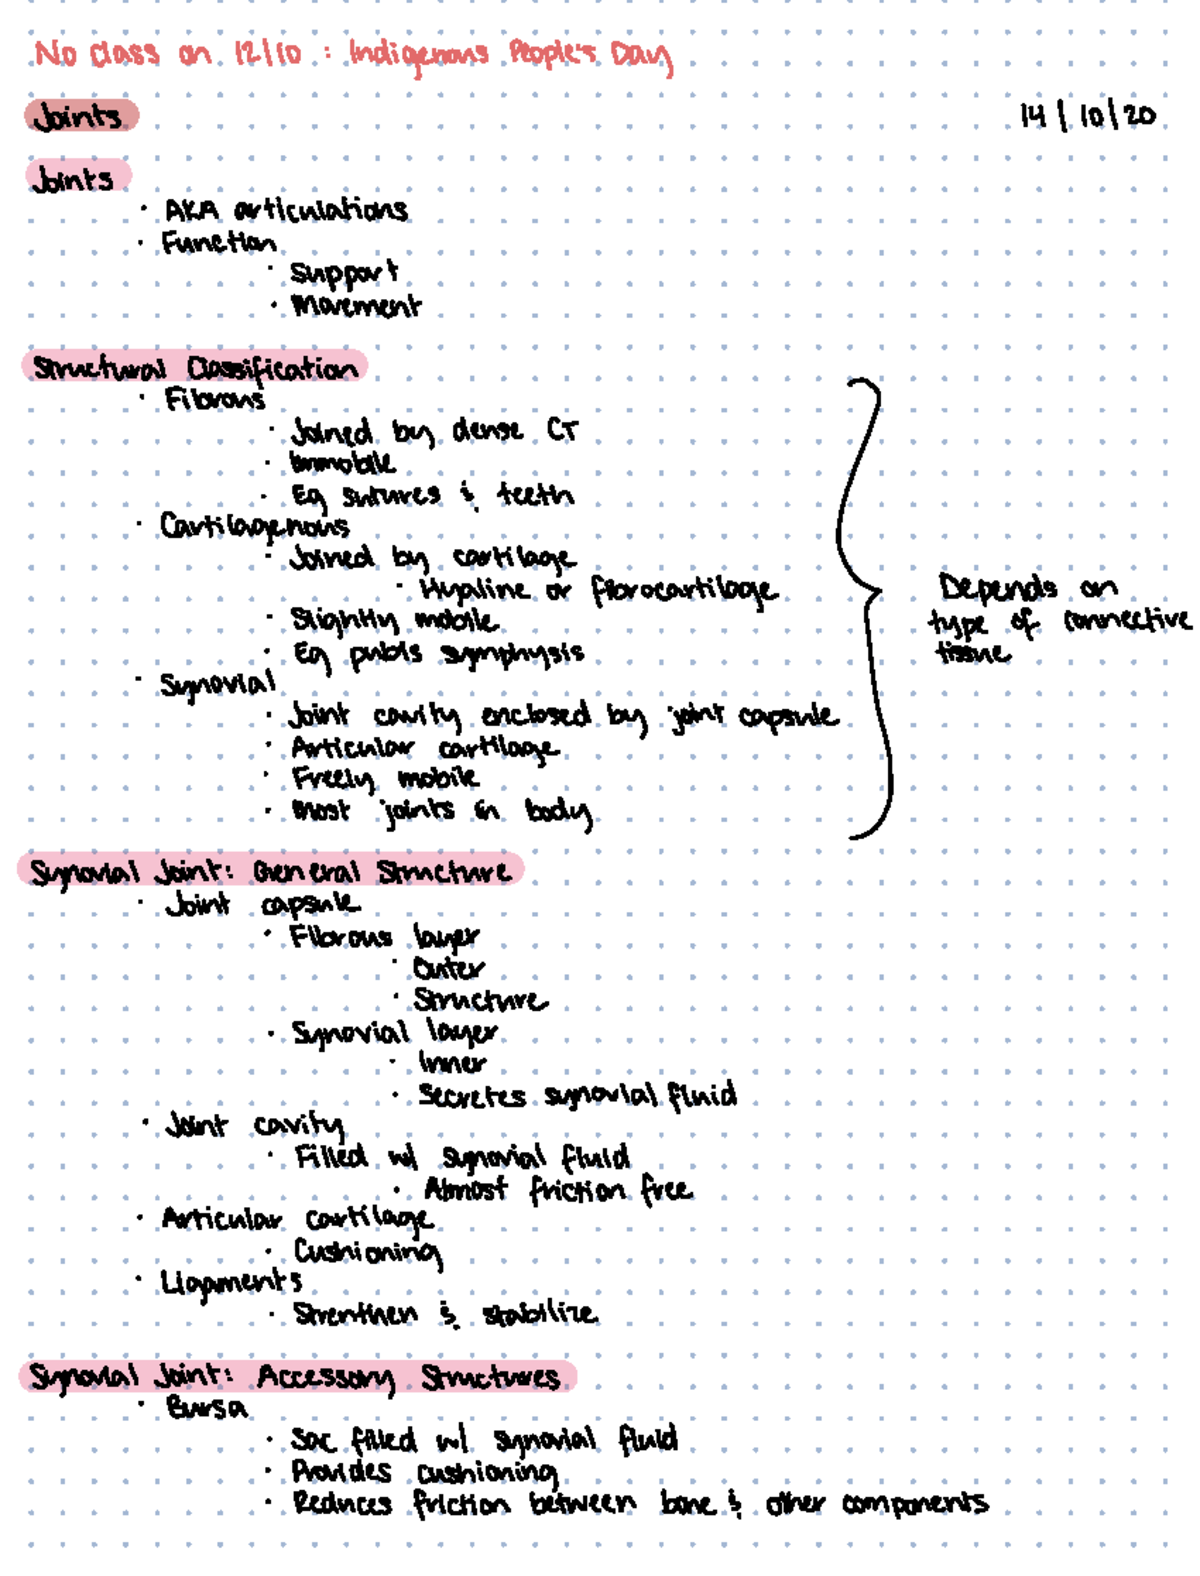 No class on 12/10 : Indigenous People's Day
Joints
14/10/20
Joints
· AKA articulations
· Function
· Support
· Movement
Structural Classification
· Fibrous
· Joined by dense CT
· Immobile
· Eg sutures & teeth
· Cartilagenous
· Joined by cartilage
· Hyaline or fibrocartilage
· Slightly mobile
· Eg pubis symphysis
· Synovial
· Joint cavity enclosed by joint capsule
· Articular cartilage
· Freely mobile
· Most joints in body
Depends on
type of connective
tissue
Synovial Joint: General Structure
· Joint capsule
· Fibrous layer
· Outer
· Structure
· Synovial layer
· Inner
· Secretes synovial fluid
· Joint cavity
· Filled w/ synovial fluid
· Almost friction free
· Articular cartilage
· Cushioning
· Ligaments
· Strenthen & stabilize
Synovial Joint: Accessory Structures
· Bursa
· Sac filled w/ synovial fluid
· Provides cushioning
· Reduces friction between bone & other components